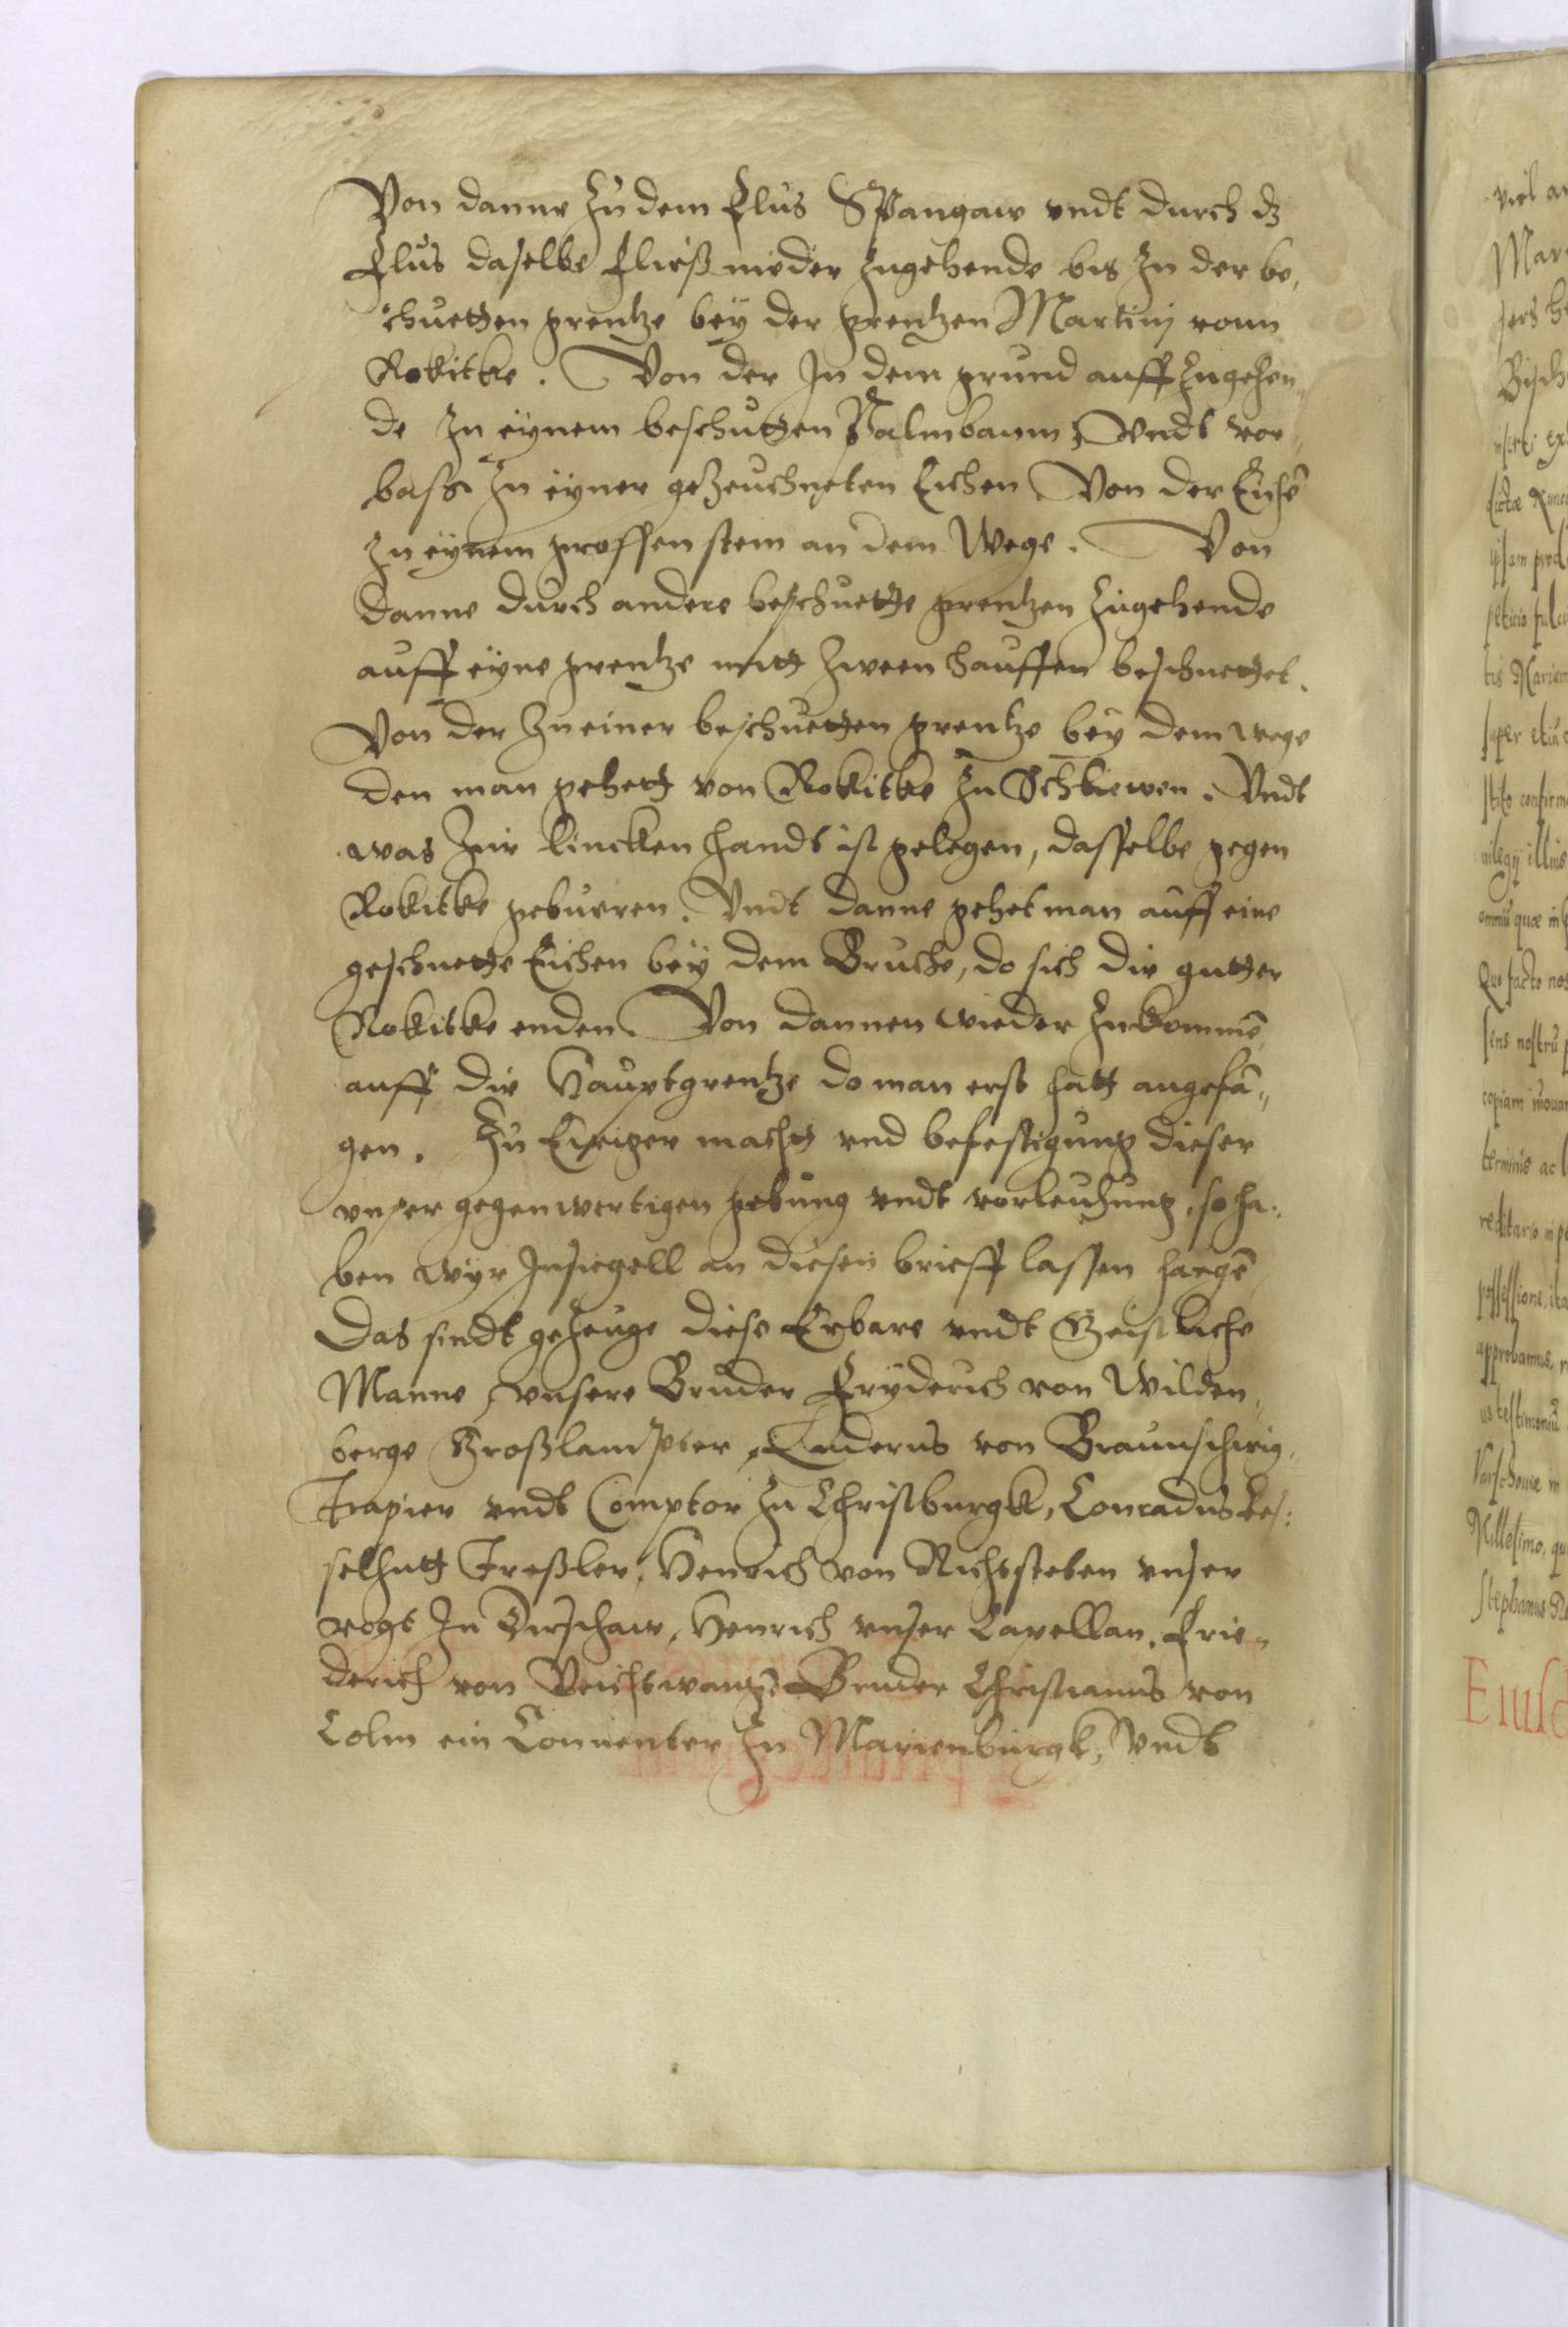 Von danne Zu dem Flus Spangaw vndt durch dz
Flus daselbe Flies nieder zugehende bis zu der be,
schuetten grentze bey der grentzen Martinj vonn
Rokitke. Von der In dem grund auff zugehen,,
de zu eynem beschutten Palmbaum, Vndt vor
bass zu eyner gezeuchneten Eichen Von der Eichē
zu eynem grossen stein an dem Wege. Von
danne durch andere beschuette grentzen zugehende
auff eyne grentze mitt zween hauffen beschuettet.
Von der zu einer beschuetten grentze bey dem wege
den man gehett von Rokitke zu Schliewen. Vndt
was zur lincken handt ist gelegen, dasselbe gegen
Rokitke geburen. Vndt danne gehet man auff eine
geschuette Eichen bey dem Bruche, do sich die gutter
Rokitke enden. Von dannen wieder zukommē
auff die Hauptgrentze do man erst hatt angefā,,
gen. Zu Ewiger macht vnd befestigung dieser
vnser gegenwertigen gebung vndt vorleihung, so ha:
ben wyr Insiegell an diesen brieff lassen hangē
Das sindt gezeuge diese Erbare vndt Geistliche
Manne, vnsere Bruder Fryderich von Wilden,
berge Großkompter, Luderus von Braunschwig,
Trapier vndt Comptor zu Christburgk, Conradus Kes:
selhutt Treßler, Henrich von vnser
vogt In Dirschaw, Henrich vnser Capellan, Frie,,
derich von Bruder Christianus von
Colm ein Conuenter zu Marienburgk, Vndt
viel an
Mari
Bisch
Quo facto nos
sens nostrū
copiam
terminis ac
possessione,
approbamus,
Varschouie in
Millesimo, qu
Stephanus